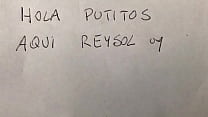 HOLA PUTITOS
AQUI REYSOL oy